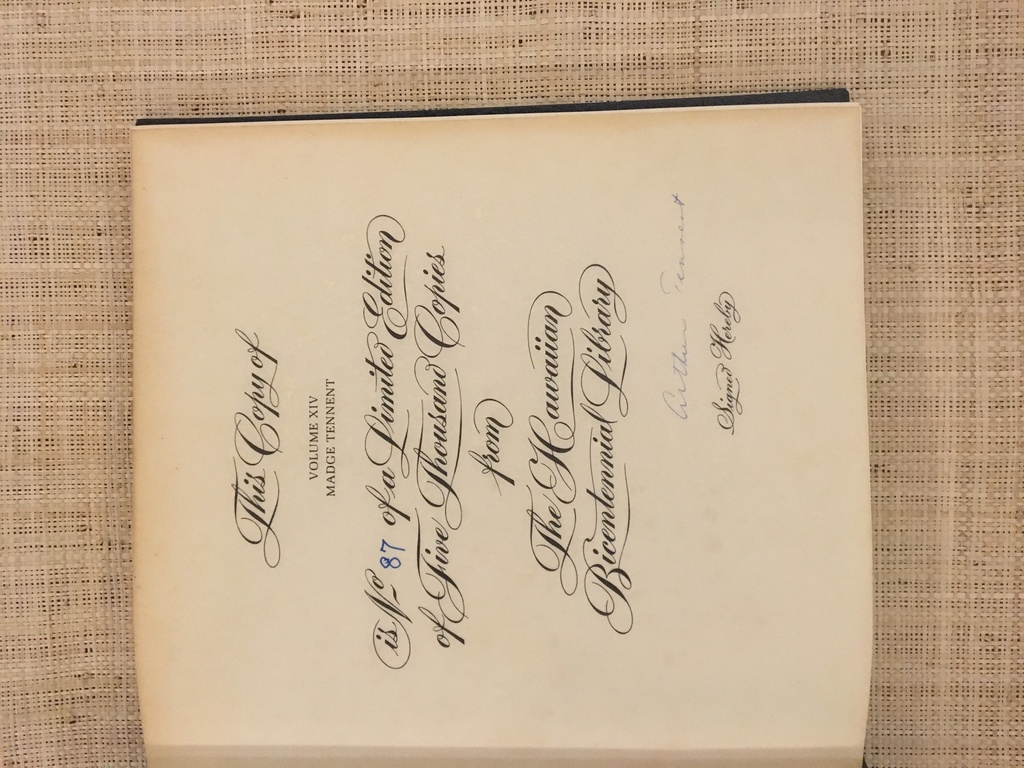 This Copy of
VOLUME XIV
MADGE TENNENT
is No 87 of a Limited Edition
of Five Thousand Copies
from
The Hawaiian
Bicentennial Library
Arthur Tennent
Signed Hereby